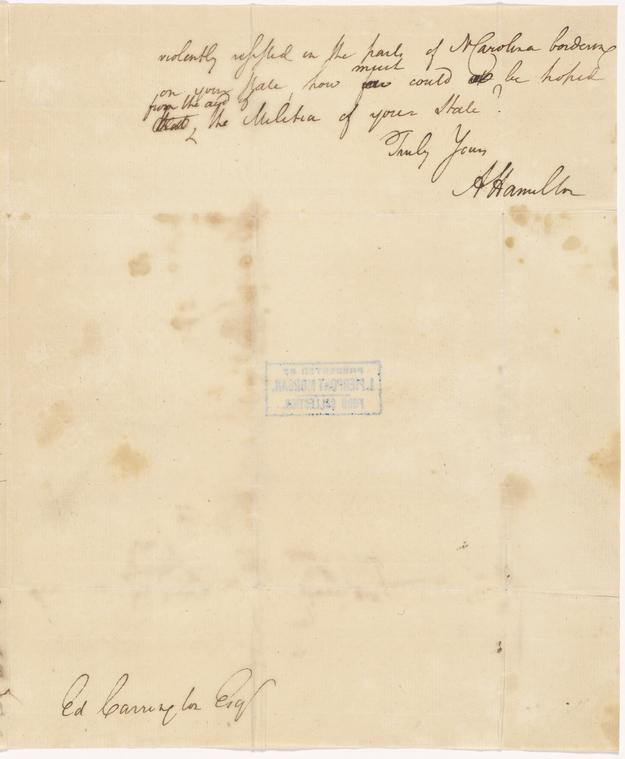 violently resisted in the parts of N Carolina bordering
on your State, how much could be hoped
from the aid of
the Militia of your State?
Truly Yours
A Hamilton
PRESENTED BY
J. PIERPONT MORGAN.
FORD COLLECTION.
Ed Carrington Esqr